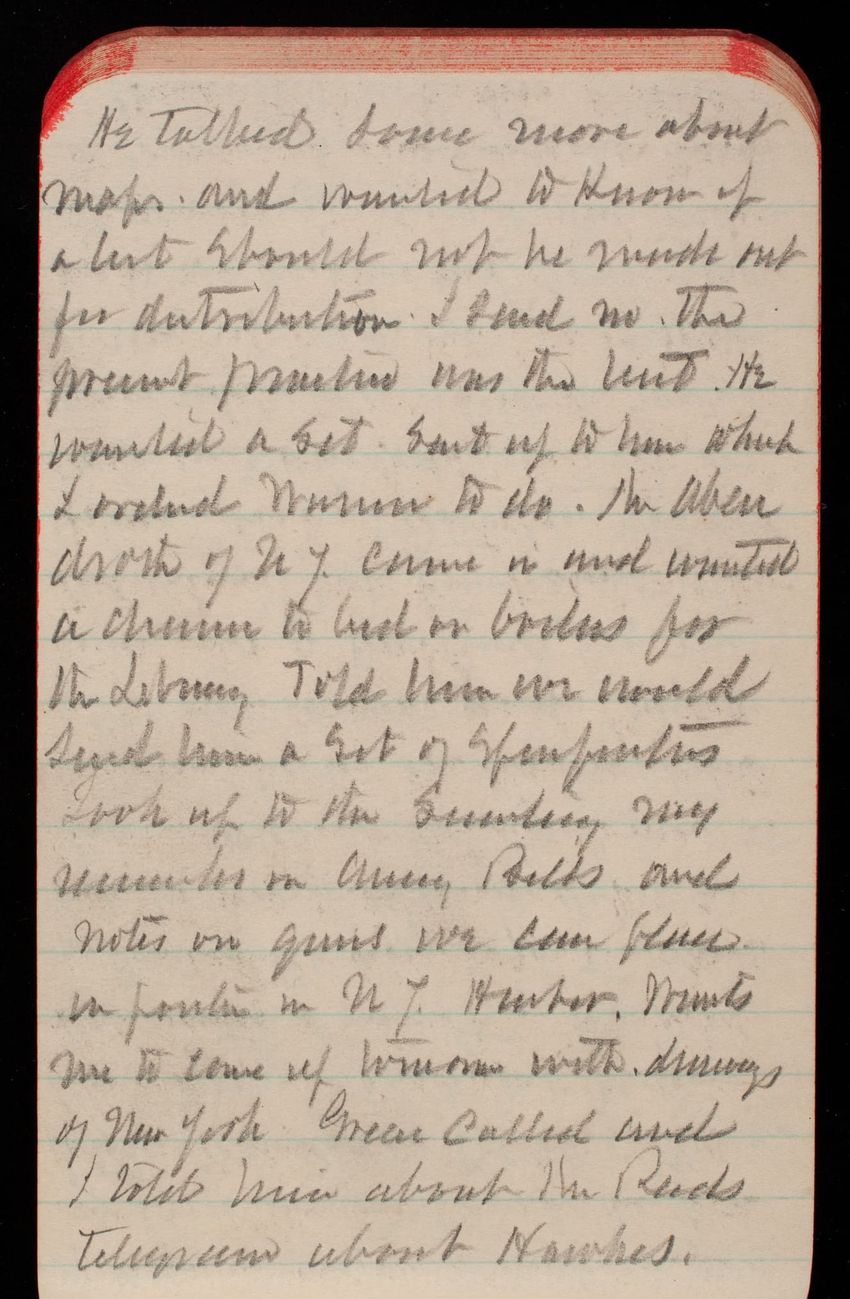 He talked some more about
maps. and wanted to know if
a list should not be made out
for distribution. I said no. the
present practice was the best. He
wanted a set sent up to him which
I ordered Warren to do. Mr Aben
droth of N Y. came in and wanted
a chance to bid on boilers for
the Library Told him we would
send him a set of specifcatns
Took up to the Secretary my
remarks on Army Bills and
notes on guns we can place
in position in N Y. Harbor. Wants
me to come up tomorrow with drawings
of New York Green called and
I told him about the Reads
telegram about Hawkes.